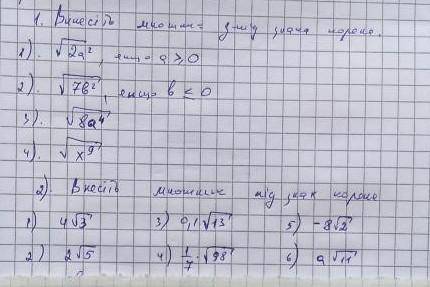 1. Винесіть множник з-під знака кореня.
1). √2a², якщо a ≥ 0
2). √7b², якщо b ≤ 0
3). √8a⁴
4). √x⁹
2). Внесіть множник під знак кореня
1) 4√3 3) 0,1·√13 5) -8√2
2) 2√5 4) 1/7·√98 6) a√11